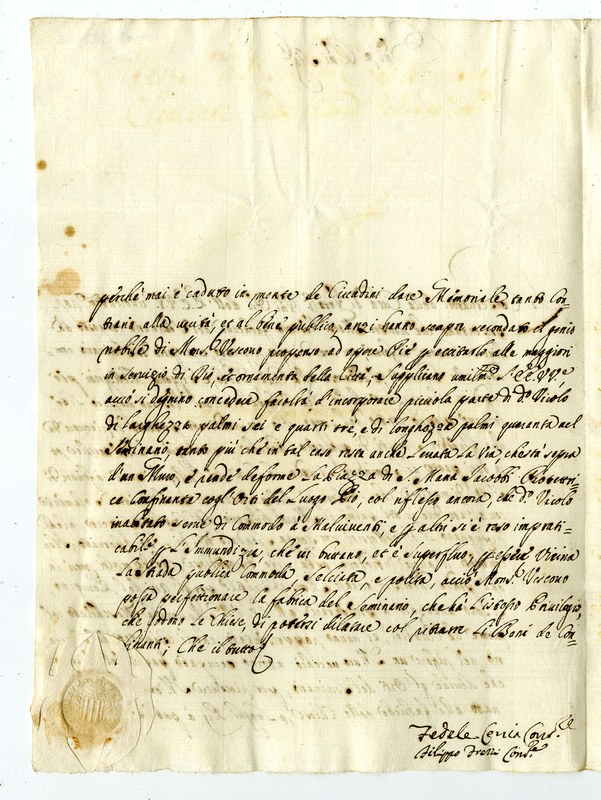 perche mai è caduto in mente de Cittadini dare Memoriale tanto Con=
trario alla verità, et al bene publico, anzi hanno sempre secondato il genio
nobile di Mons.r Vescovo propenso ad opere Pie p eccitarlo alle maggiori
in servizio di Dio, et ornamento della Città; Supplicano umilm.e
acciò si degnino concedere facoltà d'incorporare piccola parte di d.o Vicolo
di larghezza palmi sei e quarti trè, e di longhezza palmi quaranta nel
Seminario, tanto più che in tal caso resta anche Levata La Via, che stà sopra
d'un Muro, e rende deforme La Piazza di S. Maria Jacobbi
Confinante cogl'Orti del Luogo Pio, col riflesso ancora, che d.o Vicolo
inabitato serve di Commodo à Malviventi, e p altri si è reso imprati=
cabile p L'Immundizia, che vi buttano, et è superfluo, p essere Vicina
La Strada publica Commoda, selciata, e polita, acciò Mons.r Vescovo
possa perfettionare la fabrica del Seminario, che hà L'istesso Privilegio,
che godono Le Chiese, di potersi dilatare col pigliare Li Beni de Con=
finanti; Che il tutto
Fedele Cons.re
Filippo Cons.re